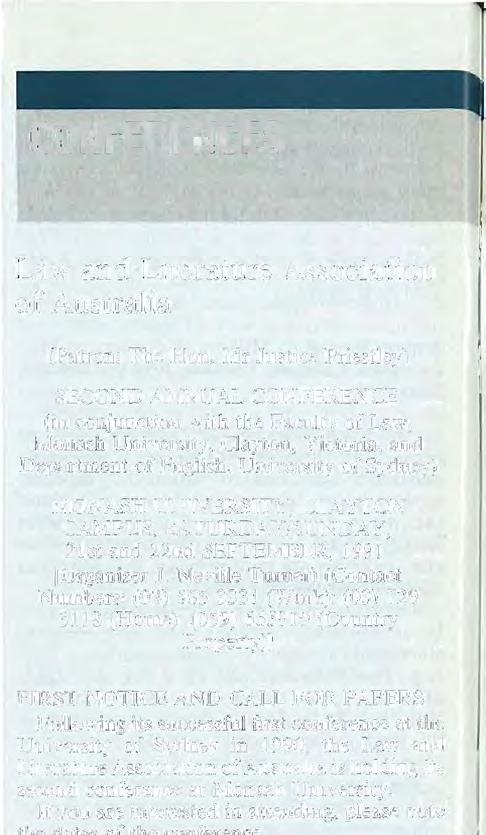 CONFERENCES
Law and Literature Association
of Australia
(Patron: The Hon. Mr Justice Priestley)
SECOND ANNUAL CONFERENCE
(in conjunction with the Faculty of Law,
Monash University, Clayton, Victoria, and
Department of English, University of Sydney)
MONASH UNIVERSITY, CLAYTON
CAMPUS, SATURDAY-SUNDAY,
21st and 22nd SEPTEMBER, 1991
[Organiser J. Neville Turner] (Contact
Numbers: (03) (Work) (03)
(Home) (Country
Property)]
FIRST NOTICE AND CALL FOR PAPERS
Following its successful first conference at the
University of Sydney in 1990, the Law and
Literature Association of Australia is holding its
second conference at Monash University.
If you are interested in attending, please note
the dates of the conference